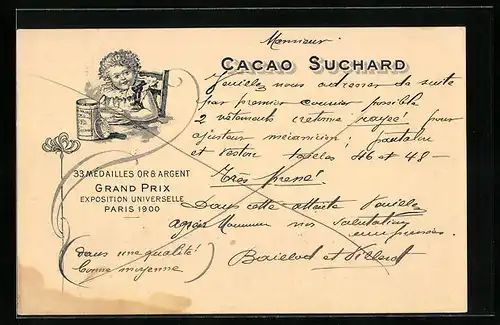 Monsieur
CACAO SUCHARD
Veuillez nous adresser de suite
par premier courrier possible
2 vêtements cretonne, rayé! pour
ajusteur mécanicien, pantalon
et veston tailles 46 et 48 —
Très pressé!
Dans cette attente Veuillez
agréer Monsieur nos salutations
empressées
Baillod et
33 MÉDAILLES OR & ARGENT
GRAND PRIX
EXPOSITION UNIVERSELLE
PARIS 1900
(dans une qualité!
bonne moyenne)